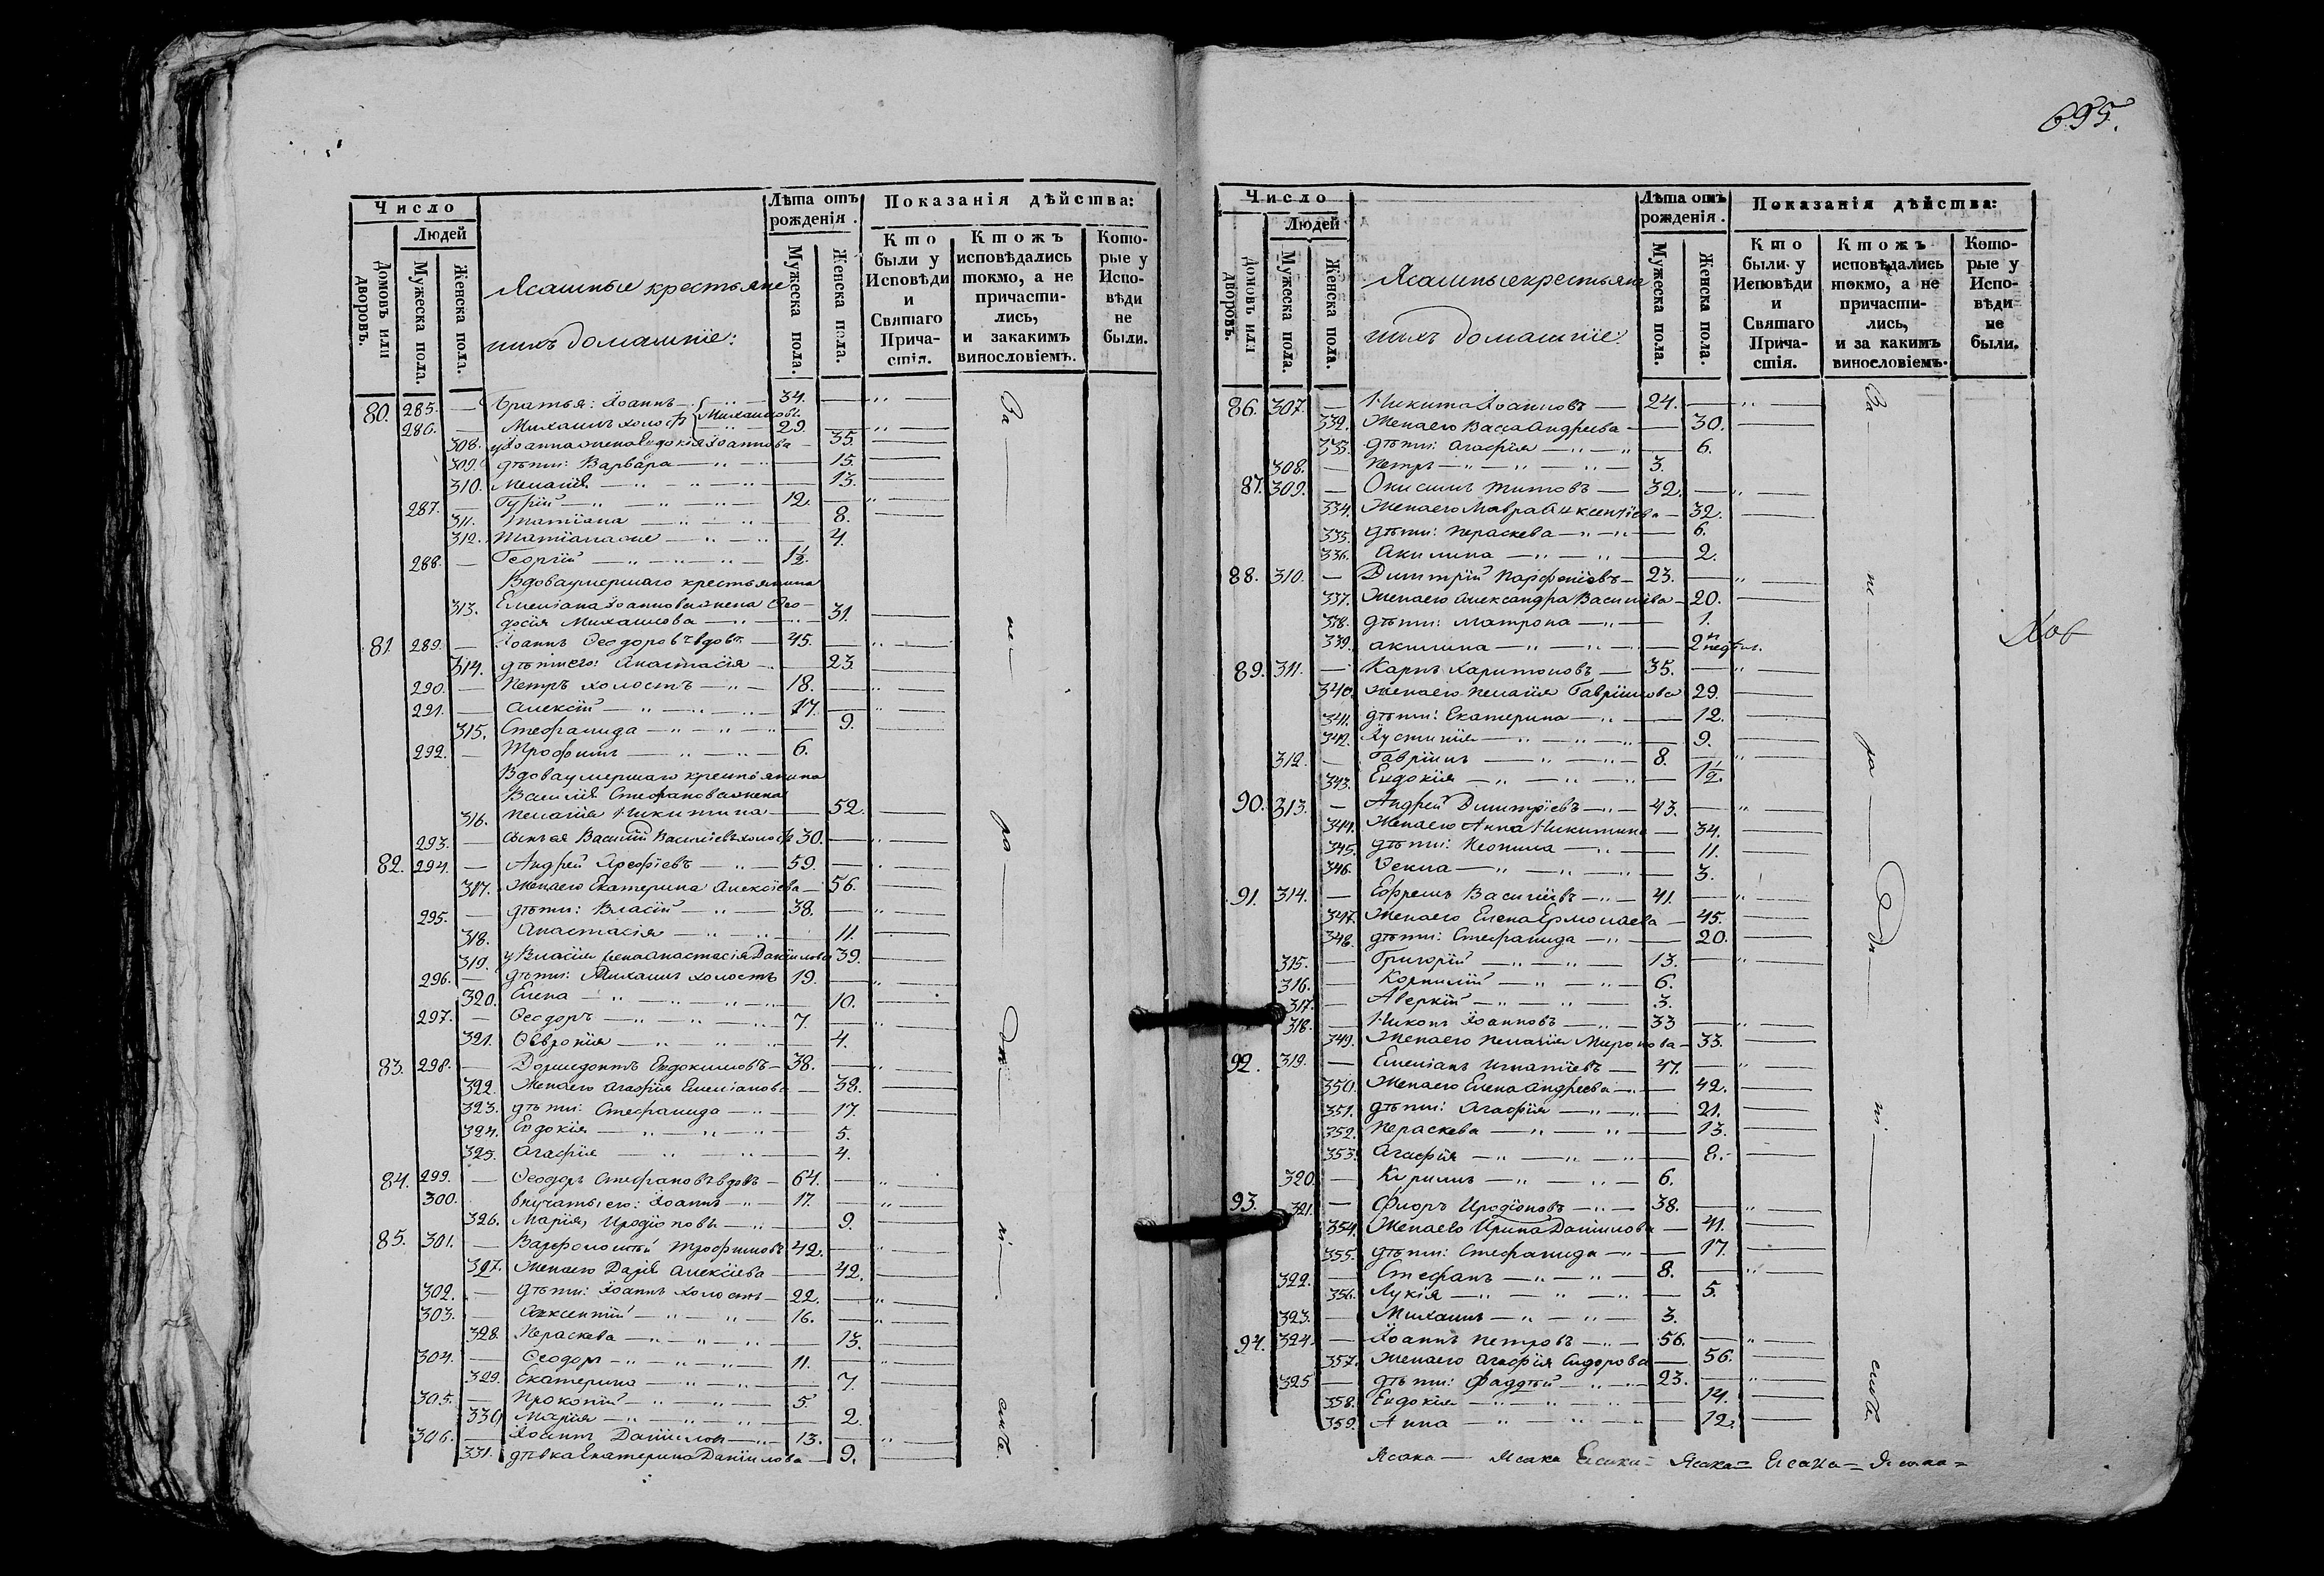 695.
Число
Лѣта отъ рожденія.
Показанія дѣйства:
Людей
Домовъ или дворовъ.
Мужеска пола.
Женска пола.
Ясашные крестьяне
ихъ домашніе:
Мужеска пола.
Женска пола.
Кто были у Исповѣди и Святаго Прича-стія.
Ктожъ исповѣдались токмо, а не причасти-лись, и закакимъ винословіемъ.
Кото-рые у Испо-вѣди не были.
80. 285. — Братья: Іоаннъ — 34.
286. — Михаилъ холос {Михаиловы 29.
308. у Іоанна жена Евдокія Іоаннова — 35.
309. дѣти: Варвара — 15.
310. Меланія — 13.
287. — Гурій — 12.
311. Татіана — 8.
312. Татіана же — 4.
288. — Георгій — 1½.
Вдова умершаго крестьянина
313. Емеліана Іоаннова жена Ѳео-
досія Михаилова — 31.
81. 289. — Іоаннъ Ѳеодоровъ вдовъ — 45.
314. дѣти его: Анастасія — 23.
290. — Петръ холостъ — 18.
291. — Алексій — 17.
315. Стефанида — 9.
292. — Трофимъ — 6.
Вдова умершаго крестьянина
Василія Стефанова жена
316. Пелагія Никитина — 52.
293. — Сынъ ея Василій Василіевъ холос 30.
82. 294. — Андрей Арефіевъ — 59.
317. Жена его Екатерина Алексіева — 56.
295. — дѣти: Власій — 38.
318. Анастасія — 11.
319. у Власія жена Анастасія Даніилова 39.
296. — дѣти: Михаилъ холостъ 19.
320. Елена — 10.
297. — Ѳеодоръ — 7.
321. Ѳеврония — 4.
83. 298. — Дормедонтъ Евдокимовъ — 38.
322. Жена его Агафія Емеліанова — 38.
323. дѣти: Стефанида — 17.
324. Евдокія — 5.
325. Агафія — 4.
84. 299. — Ѳеодоръ Стефановъ вдовъ — 64.
300. внучаты его: Іоаннъ — 17.
326. Марія, Иродіоновы — 9.
85. 301. — Варфоломей Трофимовъ 42.
327. Жена его Дарія Алексіева — 42.
302. — дѣти: Іоаннъ холостъ — 22.
303. — Авксентій — 16.
328. Параскева — 13.
304. — Ѳеодоръ — 11.
329. Екатерина — 7.
305. — Прокопій — 5.
330. Марія — 2.
306. — Іоаннъ Даніиловъ — 13.
331. дѣвка Екатерина Даніилова — 9.
За — не — ра — дѣ — ні — емъ.
Число
Лѣта отъ рожденія.
Показанія дѣйства:
Людей
Домовъ или дворовъ.
Мужеска пола.
Женска пола.
Ясашные крестьяне
ихъ домашніе:
Мужеска пола.
Женска пола.
Кто были у Исповѣди и Святаго Прича-стія.
Ктожъ исповѣдались токмо, а не причасти-лись, и за какимъ винословіемъ.
Кото-рые у Испо-вѣди не были.
86. 307. — Никита Іоанновъ — 24.
332. Жена его Васса Андреева — 30.
333. дѣти: Агафія — 6.
308. — Петръ — 3.
87. 309. — Онисимъ Титовъ — 32.
334. Жена его Мавра Авксентіева — 32.
335. дѣти: Параскева — 6.
336. Акилина — 2.
88. 310. — Димитрій Парфеніевъ — 23.
337. Жена его Александра Василіева — 20.
338. дѣти: Матрона — 1.
339. Акилина — 2 недѣл.
89. 311. — Карпъ Харитоновъ — 35.
340. Жена его Пелагія Гавріилова 29.
341. дѣти: Екатерина — 12.
342. Іустинія — 9.
312. — Гавріилъ — 8.
343. Евдокія — 1½.
90. 313. — Андрей Димитріевъ — 43.
344. Жена его Анна Никитина — 34.
345. дѣти: Неонила — 11.
346. Ѳекла — 3.
91. 314. — Ефремъ Василіевъ — 41.
347. Жена его Елена Ермолаева — 45.
348. дѣти: Стефанида — 20.
315. — Григорій — 13.
316. — Корнилій — 6.
317. — Аверкій — 3.
318. — Никонъ Іоанновъ — 33
349. Жена его Пелагія Миронова — 33.
92. 319. — Емеліанъ Игнатіевъ — 47.
350. Жена его Елена Андреева — 42.
351. дѣти: Агафія — 21.
352. Параскева — 13.
353. Агафія — 8.
320. — Кирилъ — 6.
93. 321. — Флоръ Иродіоновъ — 38.
354. Жена его Ирина Даніилова — 41.
355. дѣти: Стефанида — 17.
322. — Стефанъ — 8.
356. Лукія — 5.
323. — Михаилъ — 3.
94. 324. — Іоаннъ Петровъ — 56.
357. Жена его Агафія Сидорова — 56.
325 — дѣти: Фаддей — 23.
358. Евдокія — 14.
359. Анна — 12.
За — не — ра — дѣ — ні — емъ.